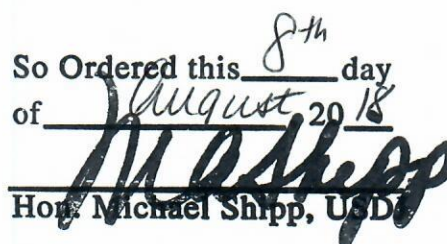 So Ordered this 8th day
of August 20 18
MAShipp
Hon. Michael Shipp, USDJ